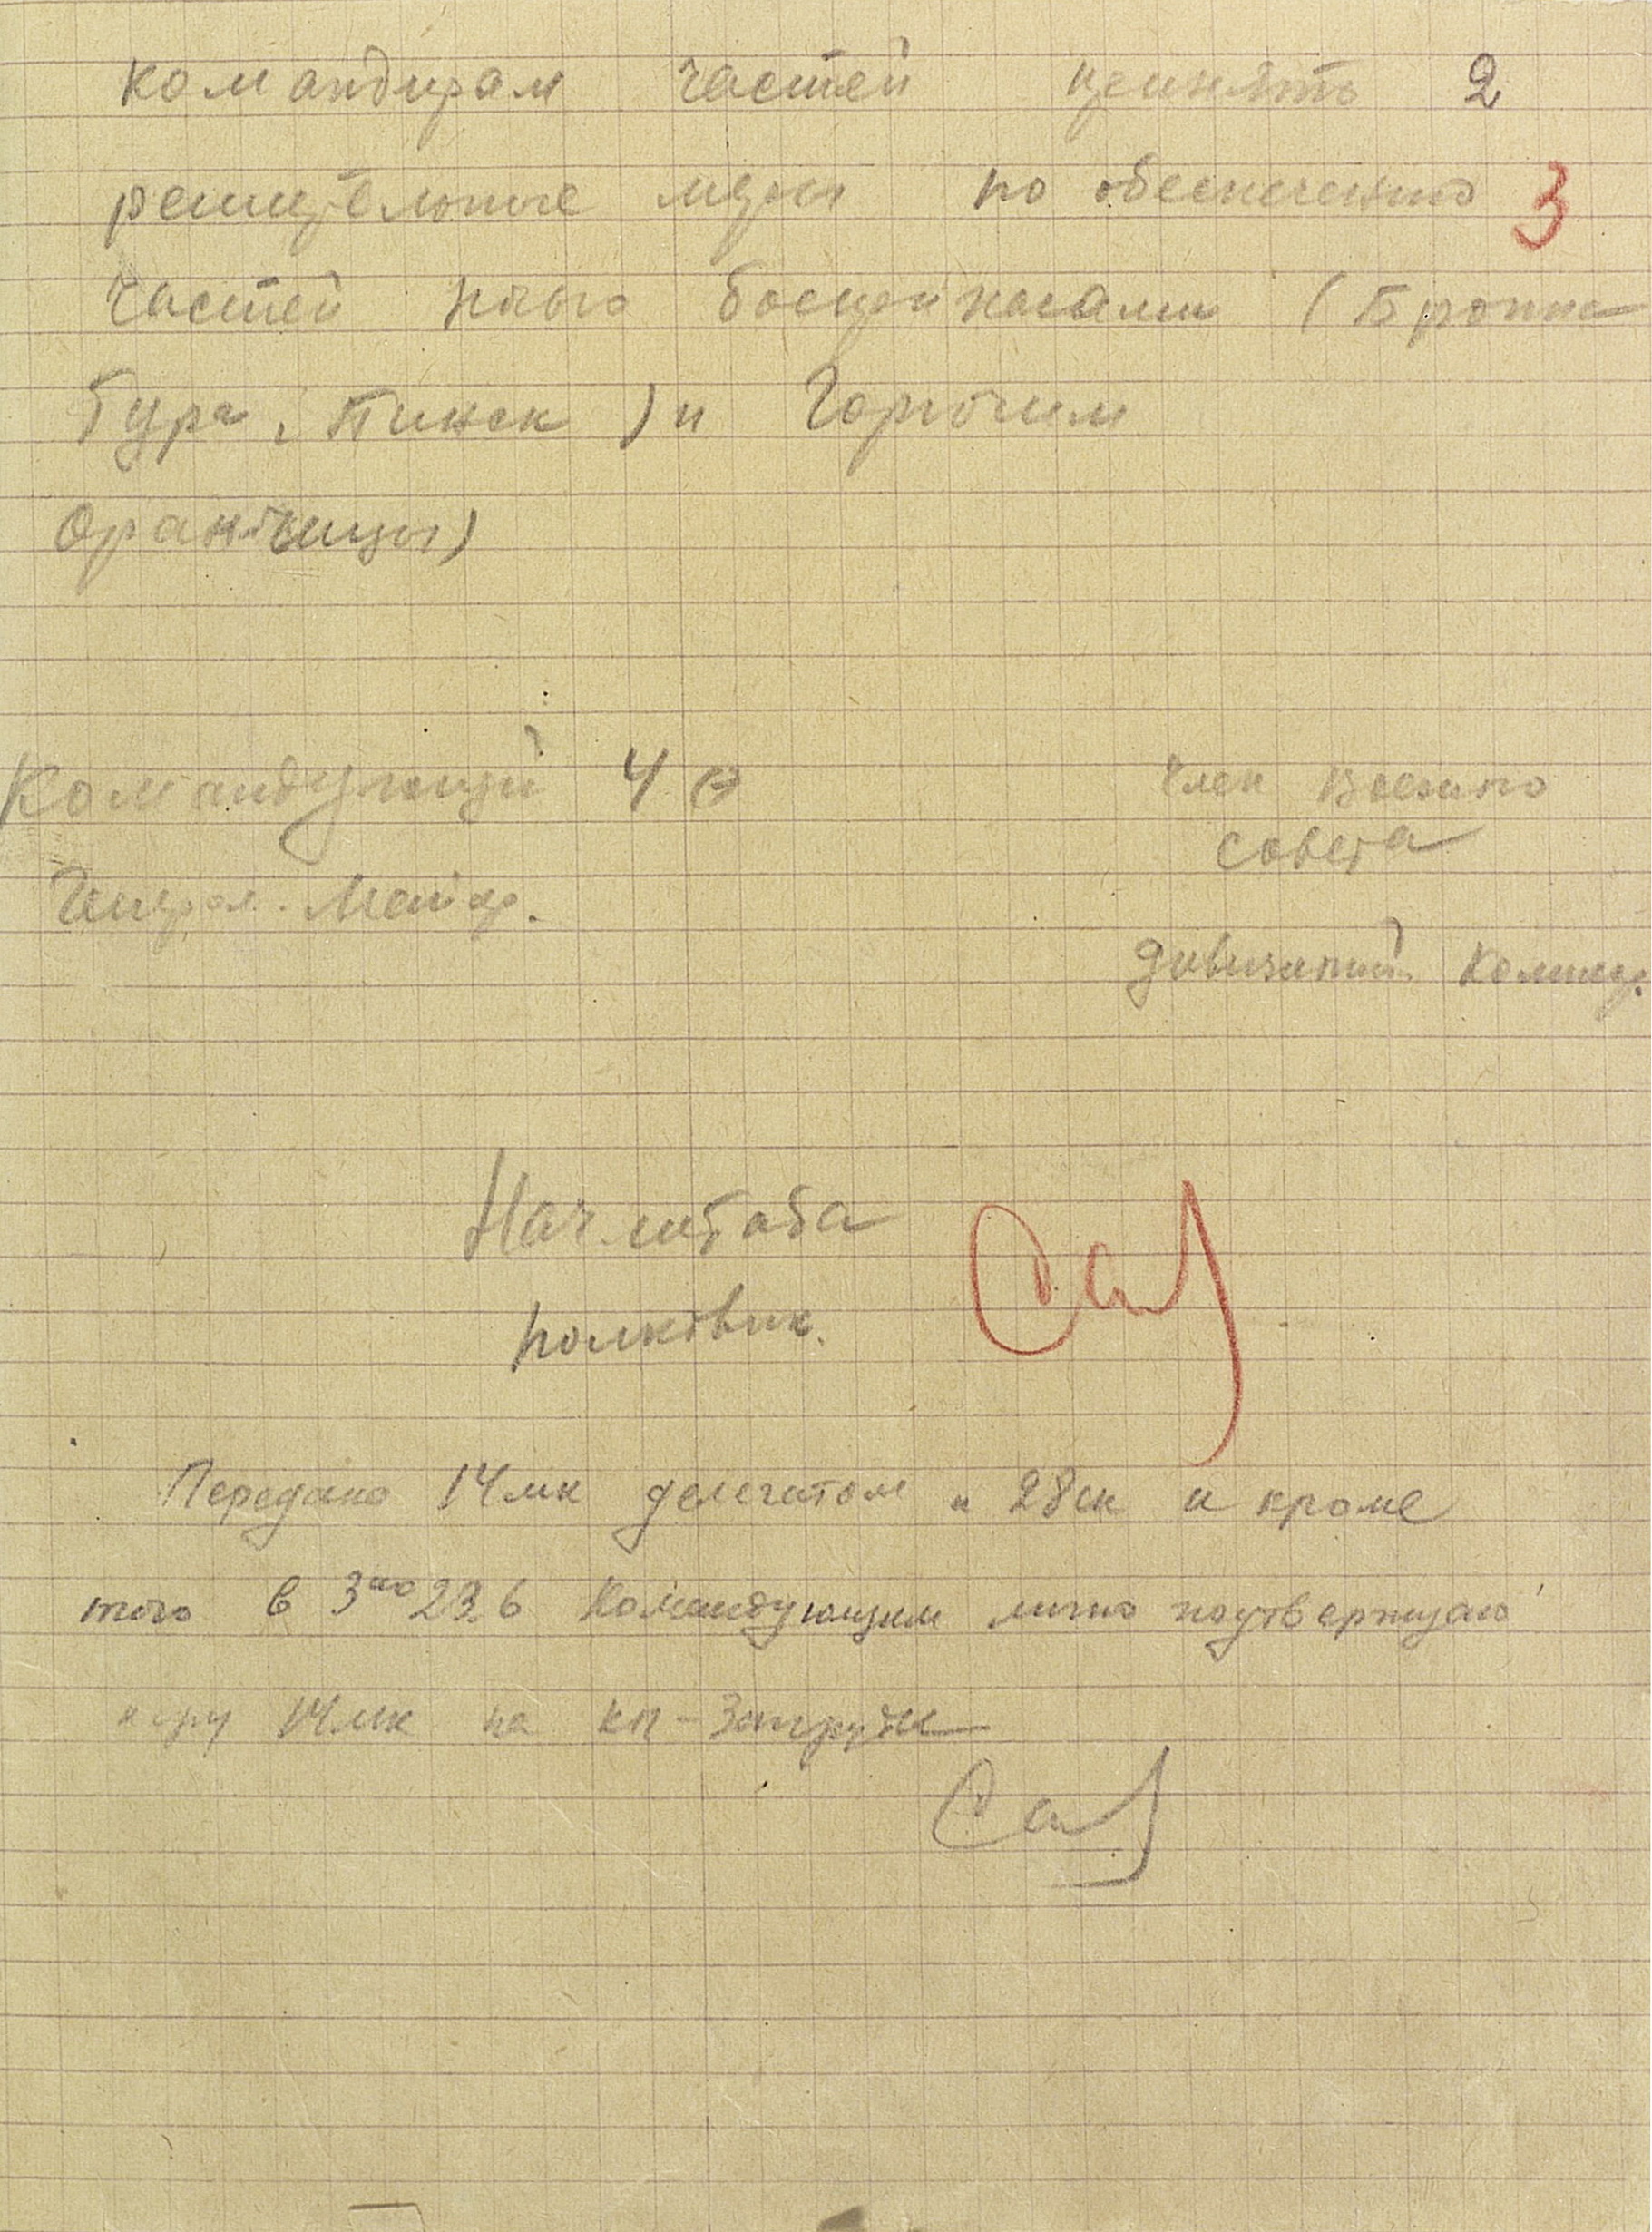 командирам частей принять 2
решительные меры по обеспечению 3
частей боеприпасами (Бронна
Гура, Пинск) и Горючим
Оранчицы)
Командующий 4 А
Член Военного
Совета
Генерал-Майор.
дивизионный Комиссар.
Нач. штаба
полковник.
Передано 14 мк делегатом и 28 ск и кроме
того в 3 00 23.6 Командующим лично подтверждено
14 мк на кп - Запруды